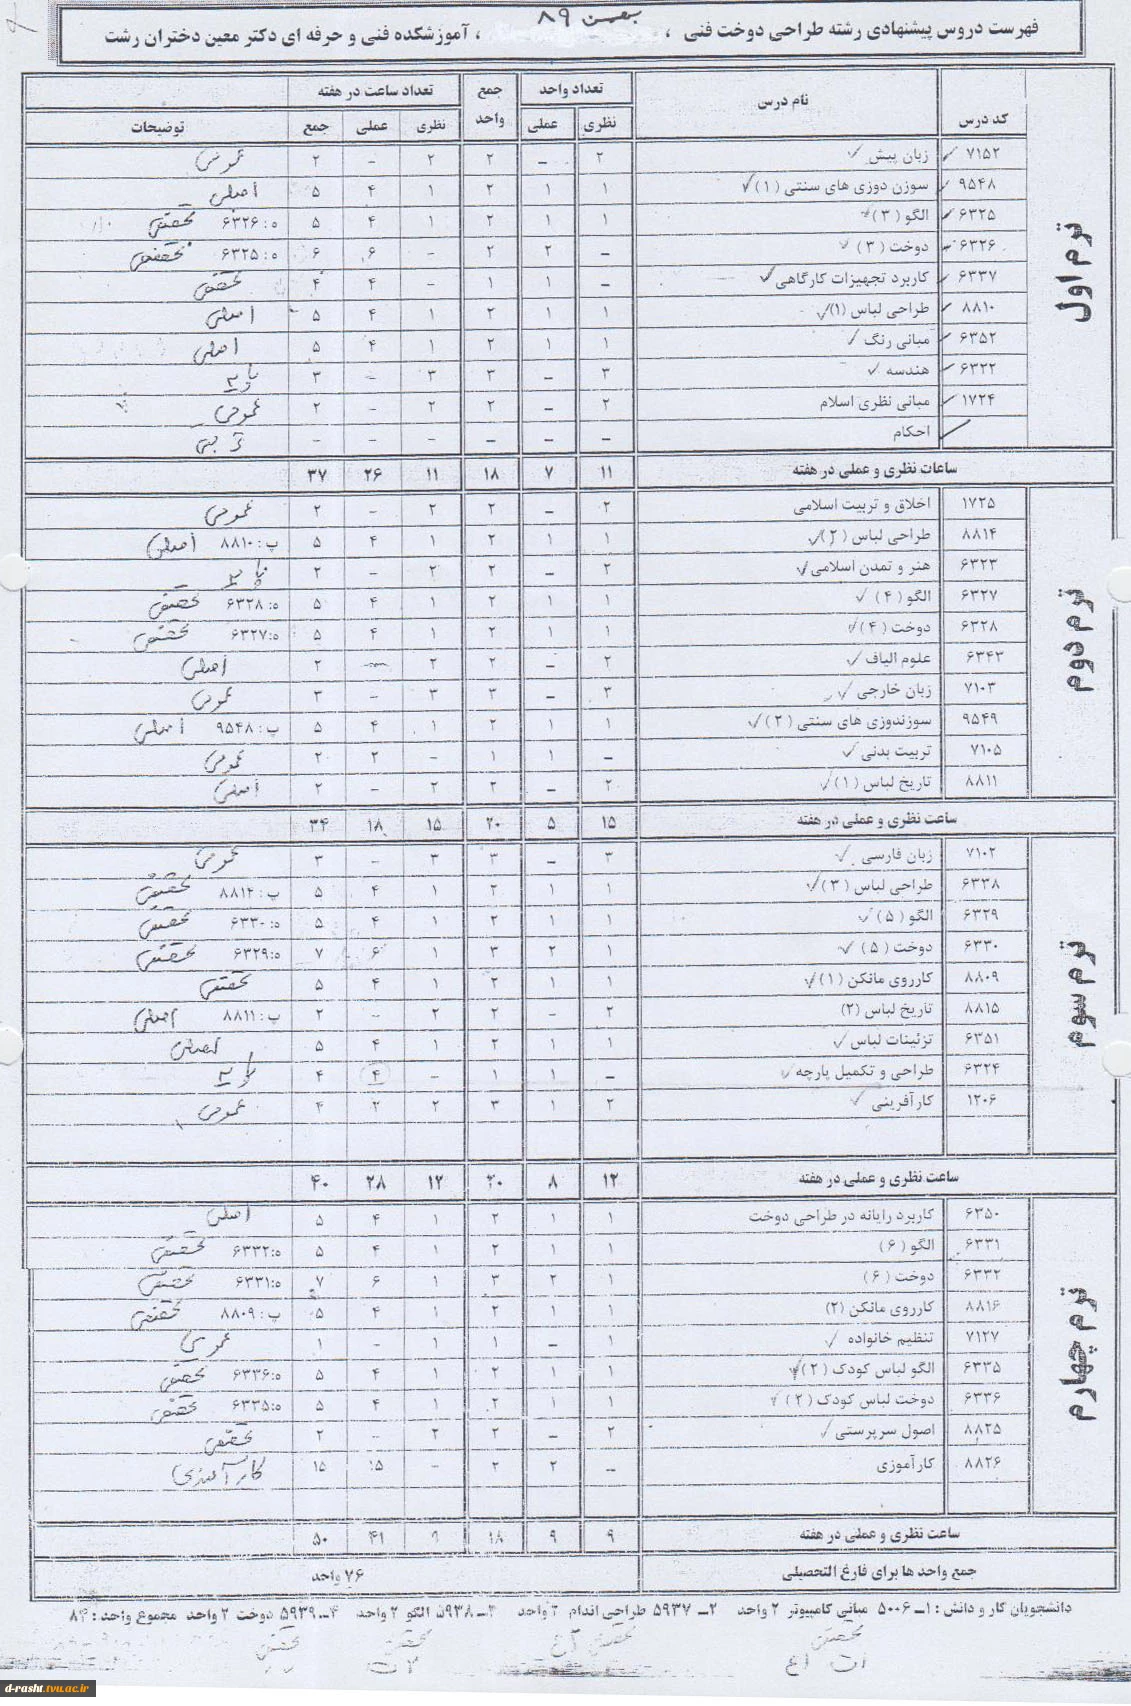 بهمن ۸۹
فهرست دروس پیشنهادی رشته طراحی دوخت فنی ، آموزشکده فنی و حرفه ای دکتر معین دختران رشت
کد درس نام درس تعداد واحد جمع واحد تعداد ساعت در هفته
نظری عملی نظری عملی جمع توضیحات
ترم اول
۷۱۵۲ زبان پیش ۲ – ۲ ۲ – ۲ عمومی
۹۵۴۸ سوزن دوزی های سنتی (۱) ۱ ۱ ۲ ۱ ۴ ۵ اصلی
۶۳۲۵ الگو (۳) ۱ ۱ ۲ ۱ ۴ ۵ ه:۶۳۲۶ تخصصی
۶۳۲۶ دوخت (۳) – ۲ ۲ – ۶ ۶ ه:۶۳۲۵ تخصصی
۶۳۳۷ کاربرد تجهیزات کارگاهی – ۱ ۱ – ۴ ۴ تخصصی
۸۸۱۰ طراحی لباس (۱) ۱ ۱ ۲ ۱ ۴ ۵ اصلی
۶۳۵۲ مبانی رنگ ۱ ۱ ۲ ۱ ۴ ۵ اصلی
۶۳۲۲ هندسه ۳ – ۳ ۳ – ۳ پایه
۱۷۲۴ مبانی نظری اسلام ۲ – ۲ ۲ – ۲ عمومی
احکام – – – – – –
ساعات نظری و عملی در هفته ۱۱ ۷ ۱۸ ۱۱ ۲۶ ۳۷
ترم دوم
۱۷۲۵ اخلاق و تربیت اسلامی ۲ – ۲ ۲ – ۲ عمومی
۸۸۱۴ طراحی لباس (۲) ۱ ۱ ۲ ۱ ۴ ۵ پ:۸۸۱۰ اصلی
۶۳۲۳ هنر و تمدن اسلامی ۲ – ۲ ۲ – ۲ پایه
۶۳۲۷ الگو (۴) ۱ ۱ ۲ ۱ ۴ ۵ ه:۶۳۲۸ تخصصی
۶۳۲۸ دوخت (۴) ۱ ۱ ۲ ۱ ۴ ۵ ه:۶۳۲۷ تخصصی
۶۳۴۳ علوم الیاف ۲ – ۲ ۲ – ۲ اصلی
۷۱۰۳ زبان خارجی ۳ – ۳ ۳ – ۳ عمومی
۹۵۴۹ سوزندوزی های سنتی (۲) ۱ ۱ ۲ ۱ ۴ ۵ پ:۹۵۴۸ اصلی
۷۱۰۵ تربیت بدنی – ۱ ۱ – ۲ ۲ عمومی
۸۸۱۱ تاریخ لباس (۱) ۲ – ۲ ۲ – ۲ اصلی
ساعت نظری و عملی در هفته ۱۵ ۵ ۲۰ ۱۵ ۱۸ ۳۴
ترم سوم
۷۱۰۲ زبان فارسی ۳ – ۳ ۳ – ۳ عمومی
۶۳۳۸ طراحی لباس (۳) ۱ ۱ ۲ ۱ ۴ ۵ پ:۸۸۱۴ تخصصی
۶۳۲۹ الگو (۵) ۱ ۱ ۲ ۱ ۴ ۵ ه:۶۳۳۰ تخصصی
۶۳۳۰ دوخت (۵) ۱ ۲ ۳ ۱ ۶ ۷ ه:۶۳۲۹ تخصصی
۸۸۰۹ کارروی مانکن (۱) ۱ ۱ ۲ ۱ ۴ ۵ تخصصی
۸۸۱۵ تاریخ لباس (۲) ۲ – ۲ ۲ – ۲ پ:۸۸۱۱ اصلی
۶۳۵۱ تزئینات لباس ۱ ۱ ۲ ۱ ۴ ۵ اصلی
۶۳۲۴ طراحی و تکمیل پارچه – ۱ ۱ – ۴ ۴ پایه
۱۲۰۶ کارآفرینی ۲ ۱ ۳ ۲ ۲ ۴ عمومی
ساعت نظری و عملی در هفته ۱۲ ۸ ۲۰ ۱۲ ۲۸ ۴۰
ترم چهارم
۶۳۵۰ کاربرد رایانه در طراحی دوخت ۱ ۱ ۲ ۱ ۴ ۵ اصلی
۶۳۳۱ الگو (۶) ۱ ۱ ۲ ۱ ۴ ۵ ه:۶۳۳۲ تخصصی
۶۳۳۲ دوخت (۶) ۱ ۲ ۳ ۱ ۶ ۷ ه:۶۳۳۱ تخصصی
۸۸۱۶ کارروی مانکن (۲) ۱ ۱ ۲ ۱ ۴ ۵ پ:۸۸۰۹ تخصصی
۷۱۲۷ تنظیم خانواده ۱ – ۱ ۱ – ۱ عمومی
۶۳۳۵ الگو لباس کودک (۲) ۱ ۱ ۲ ۱ ۴ ۵ ه:۶۳۳۶ تخصصی
۶۳۳۶ دوخت لباس کودک (۲) ۱ ۱ ۲ ۱ ۴ ۵ ه:۶۳۳۵ تخصصی
۸۸۲۵ اصول سرپرستی ۲ – ۲ ۲ – ۲ تخصصی
۸۸۲۶ کارآموزی – ۲ ۲ – ۱۵ ۱۵ کارآموزی
ساعت نظری و عملی در هفته ۹ ۹ ۱۸ ۹ ۴۱ ۵۰
جمع واحد ها برای فارغ التحصیلی ۷۶ واحد
دانشجویان کار و دانش : ۱ـ ۵۰۰۶ مبانی کامپیوتر ۲ واحد ۲ـ ۵۹۳۷ طراحی اندام ۲ واحد ۳ـ ۵۹۳۸ الگو ۲ واحد ۴ـ ۵۹۳۹ دوخت ۲ واحد مجموع واحد : ۸۴
تخصصی تخصصی تخصصی تخصصی
d-rasht.tvu.ac.ir